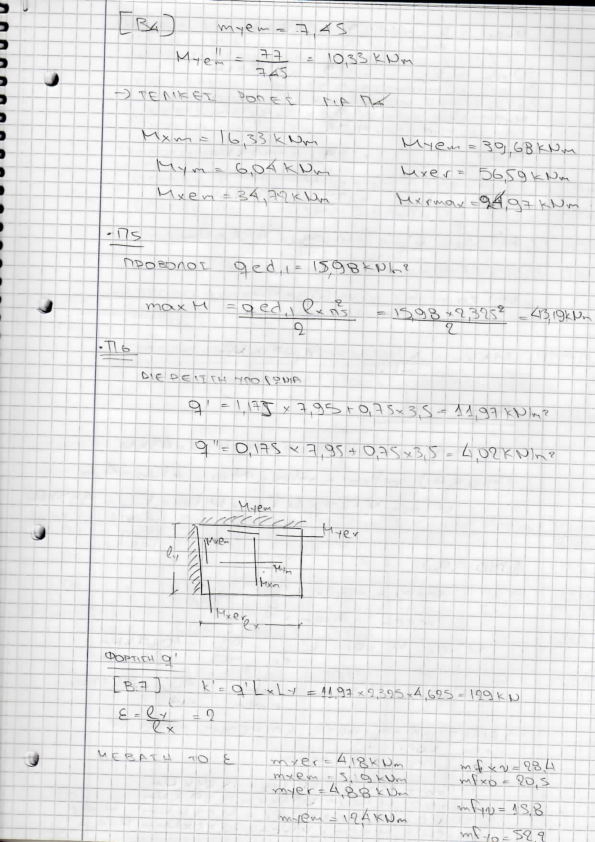 [B4] myem = 7,45
Myem'' = 77/7,45 = 10,33 kNm
→ ΤΕΛΙΚΕΣ ΡΟΠΕΣ ΓΙΑ Π4
Mxm = 16,33 kNm Myem = 39,68 kNm
Mym = 6,04 kNm Mxer = 56,59 kNm
Mxem = 34,72 kNm Mxrmax = 94,97 kNm
· Π5
ΠΡΟΒΟΛΟΣ qed,1 = 15,98 kN/m²
max M = qed,1 lxπ5²/2 = 15,98 × 2,325²/2 = 43,19 kNm
· Π6
ΔΙΕΡΕΙΣΤΗ ΥΠΟ ΓΩΝΙΑ
q' = 1,175 × 7,95 + 0,75 × 3,5 = 11,97 kN/m²
q'' = 0,175 × 7,95 + 0,75 × 3,5 = 4,02 kN/m²
Myem
Myer
Mxem
ly
Mym
Mxm
Mxer
lx
ΦΟΡΤΙΣΗ q'
[B.7] k' = q' Lx Ly = 11,97 × 2,325 × 4,625 = 129 kN
ε = ly/lx = 2
ΜΕ ΒΑΣΗ ΤΟ ε mxer = 4,18 kNm mfxv = 28,4
mxem = 5,19 kNm mfxo = 20,5
myer = 4,88 kNm
mfyv = 15,8
myem = 12,4 kNm
mfyo = 52,9